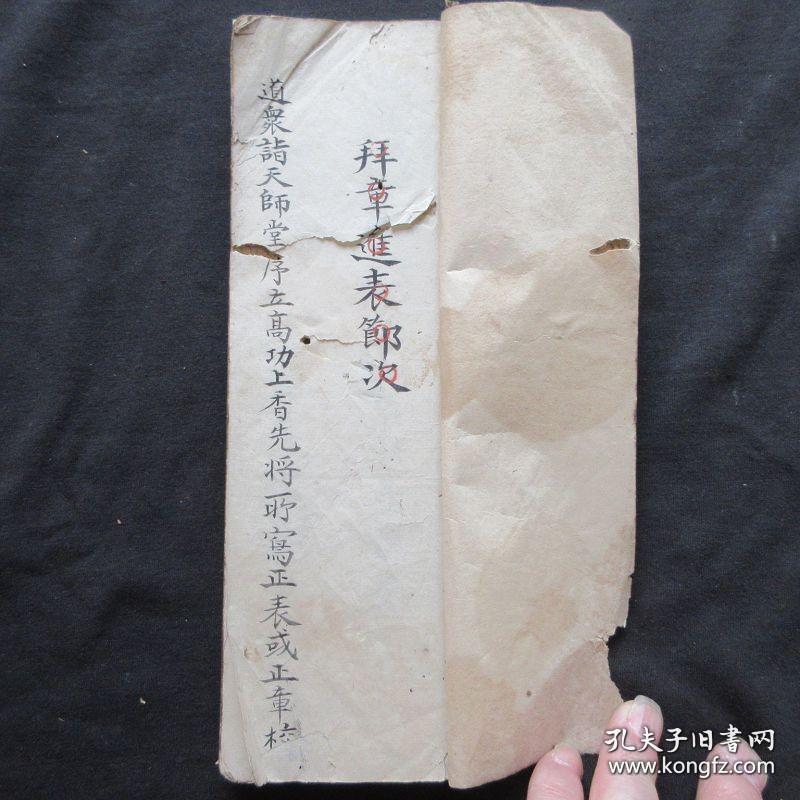 拜章進表節次
道衆詣天師堂序立高功上香先將所寫正表或正章檢
孔夫子旧書网
www.kongfz.com